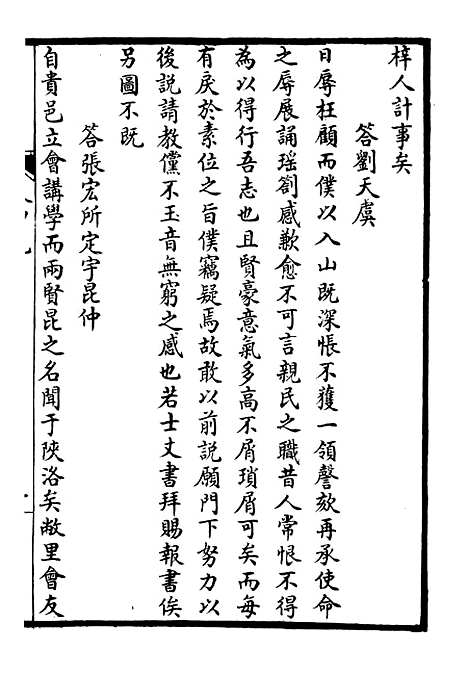 梓人計事矣
答劉天虞
日辱枉顧而僕以入山既深悵不獲一領謦欬再承使命
之辱展誦瑶劄感歉愈不可言親民之職昔人常恨不得
為以得行吾志也且賢豪意氣多高不屑瑣屑可矣而每
有戾於素位之旨僕竊疑焉故敢以前説願門下努力以
後説請教儻不玉音無窮之感也若士丈書拜賜報書俟
另圖不既
答張宏所定宇昆仲
自貴邑立會講學而兩賢昆之名聞于陜洛矣敝里會友